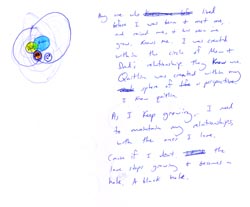 Any one who lived
before I was born & met me,
and raised me, & has seen me
grow, knows me. I was created
within the circle of Mom &
Dad's relationship they know me.
Quaitlin was created within my
sphere of life & perspective
I know
As I keep growing, I need
to maintain my relationships
with the ones I love.
Cause if I don't the
love stops growing & becomes a
hole. A black hole.